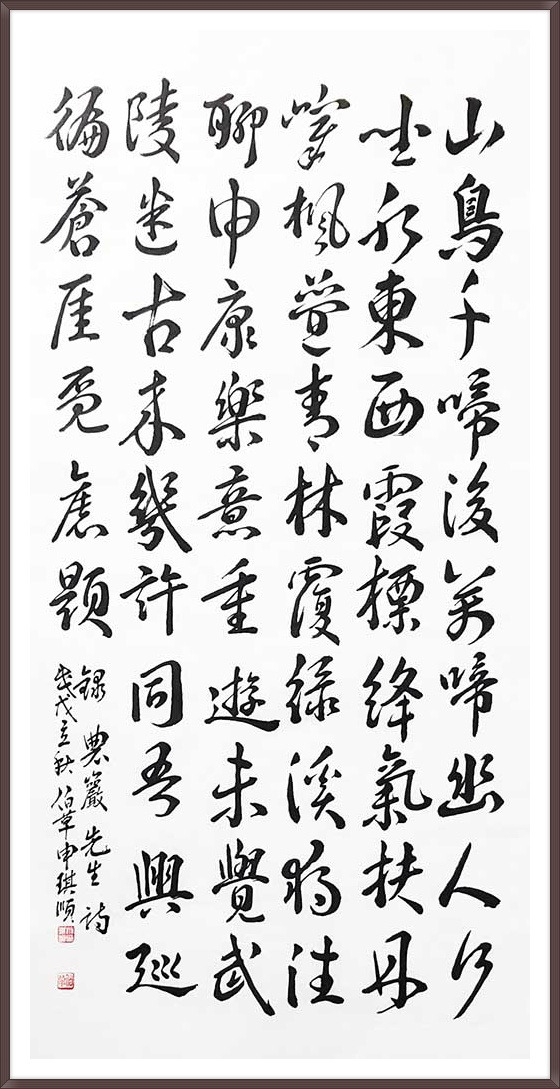 山鳥千啼後萬啼幽人行
坐水東西霞標絳氣扶丹
楓疊青林覆綠溪獨往
聊申康樂意重遊未覺武
陵迷古來幾許同吾興巡
徧蒼厓覓舊題
録典巖先生詩
戊戌立秋伯草申琪順